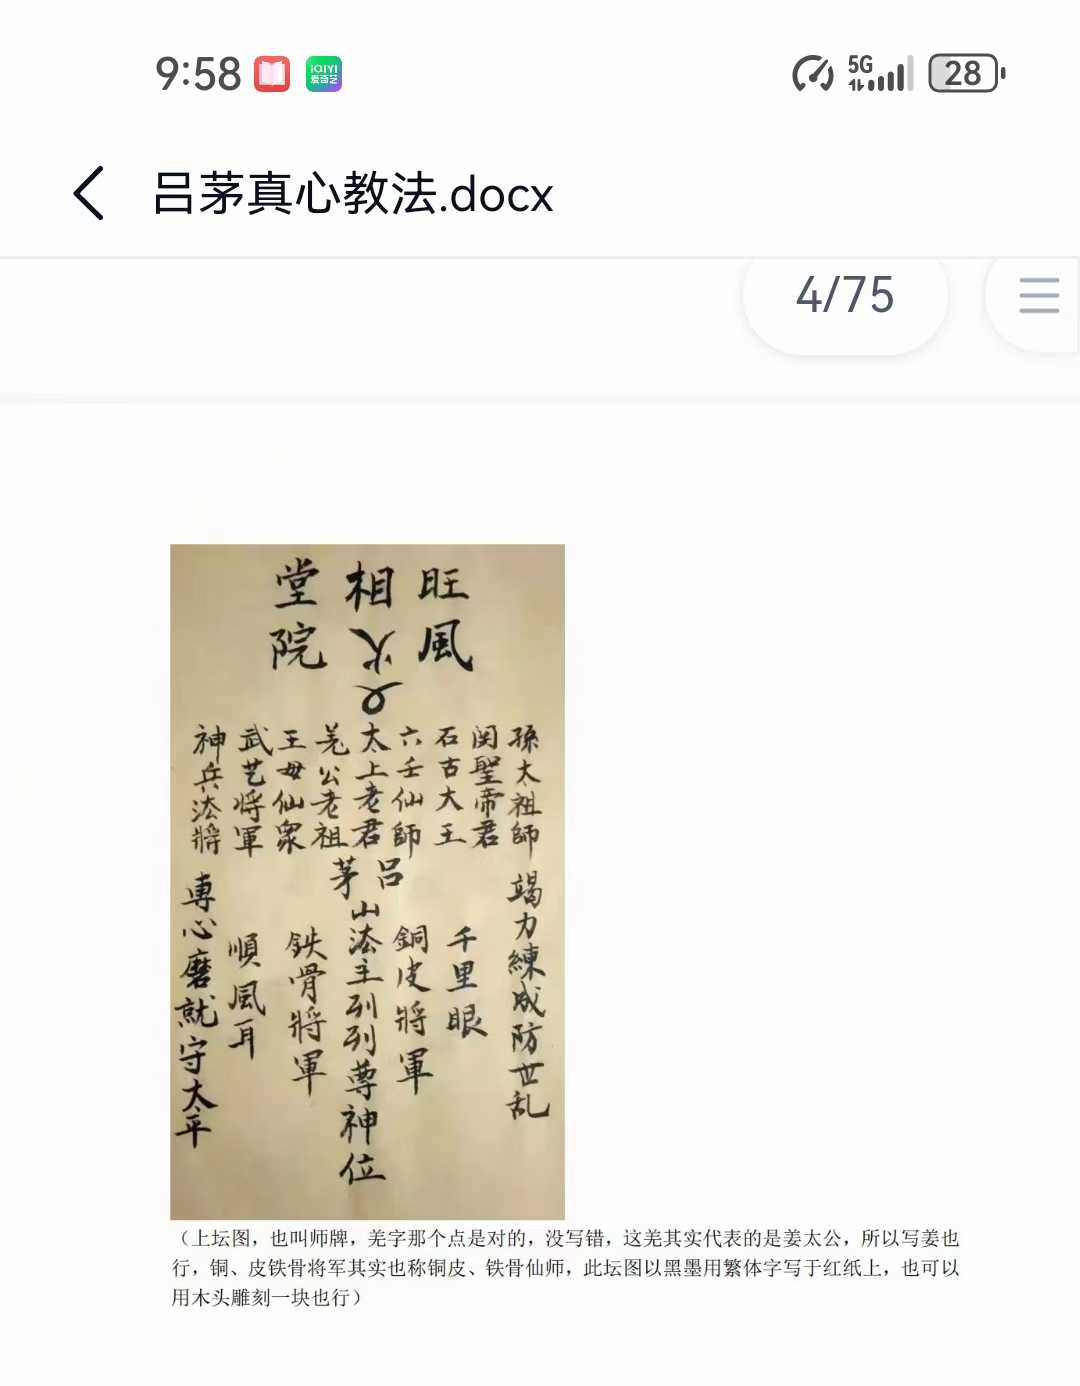 9:58
iQIYI
爱奇艺
5G
28
吕茅真心教法.docx
4/75
旺相堂
風火院
孫太祖師
関聖帝君
石古大王
六壬仙師
太上老君
羌公老祖
王母仙衆
武艺将軍
神兵法將
竭力練成防世乱
千里眼
銅皮將軍
吕茅
山法主列列尊神位
鉄骨將軍
順風耳
専心磨就守太平
（上坛图，也叫师牌，羌字那个点是对的，没写错，这羌其实代表的是姜太公，所以写姜也
行，铜、皮铁骨将军其实也称铜皮、铁骨仙师，此坛图以黑墨用繁体字写于红纸上，也可以
用木头雕刻一块也行）